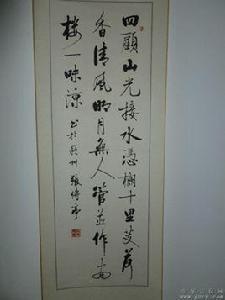 四顧山光接水憑欄十里芰荷
香清風明月無人管並作南
樓一味涼 书於州 張